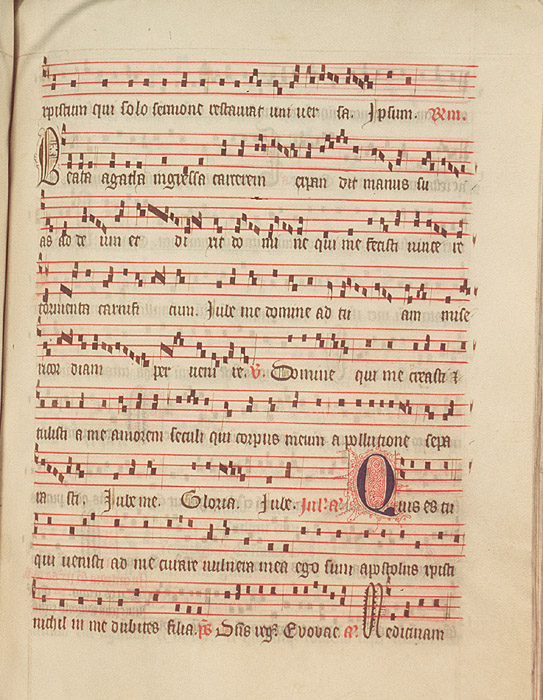 xpistum qui solo sermone restaurat uni ver sa. Ipsum. Rm.
Beata agatha ingressa carcerem expan dit manus su
as ad de um et di xit do mi ne qui me fecisti vince re
tormenta carnifi cum. Iube me domine ad tu am mise
ricor diam per veni re. v. Domine qui me creasti et
tulisti a me amorem seculi qui corpus meum a pollutione sepa
ra sti. Iube me. Gloria. Iube. Quis es tu
qui venisti ad me curare vulnera mea ego sum apostolus xpisti
nichil in me dubites filia. ps Evovae. a. Medicinam